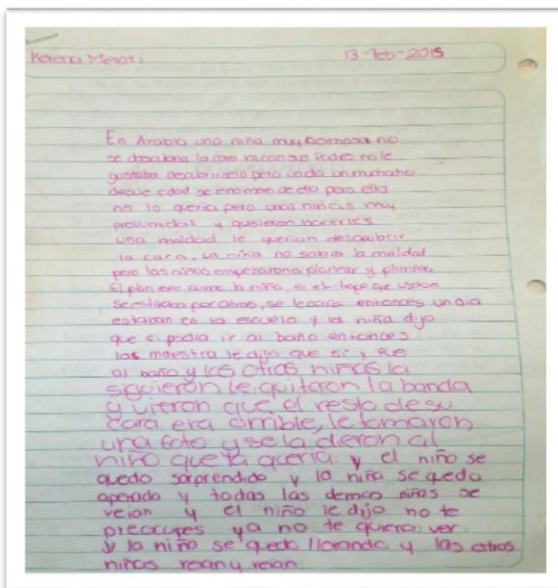 Kerena Merari 13-Feb-2015
En Arabia una niña muy hermosa no
se la cara no
gustaba pero un dia un muchacho
de su edad se enamoro de ella pero ella
no lo queria pero unas niñas muy
presumidas y quisieron hacerles
una maldad le querian descubrir
la cara, la niña no sabia la maldad
pero las niñas empezaron a planear y planear
El plan era a la niña, el que usaban
se por atras, se entonces un dia
estaban en la escuela y la niña dijo
que si podia ir al baño entonces
las maestra le dijo que si y fue
al baño y las otras niñas la
siguieron le quitaron la banda
y vieron que el resto de su
cara era orrible, le tomaron
una foto y se la dieron al
niño que la queria y el niño se
quedo sorprendido y la niña se quedo
apenada y todas las demas niñas se
veian y el niño le dijo no te
preocupes ya no te quiero ver
y la niña se quedo llorando y las otras
niñas reian y reian